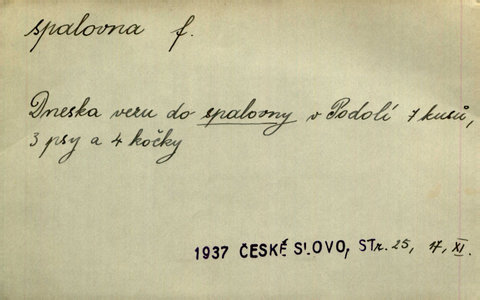 spalovna f.
Dneska vezu do spalovny v Podolí 7 kusů,
3 psy a 4 kočky
1937 ČESKÉ SLOVO, STR. 25, 17, XI.